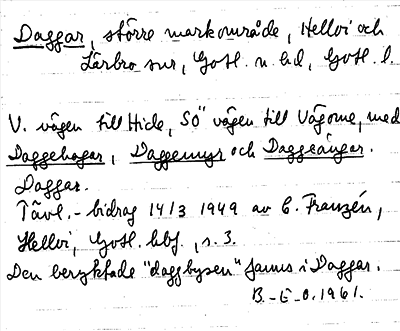 Daggar, större markområde, Hellvi och
Lärbro snr, Gotl. n. hd, Gotl. l.
V. vägen till Hide, SÖ vägen till Vägome, med
Daggehagar, Daggemyr och Daggeängar.
Daggar.
Tävl.-bidrag 14/3 1949 av C. Franzén,
Hellvi, Gotl. hbf., s. 3.
Den beryktade "daggbysen" fanns i Daggar.
B.-E-O. 1961.